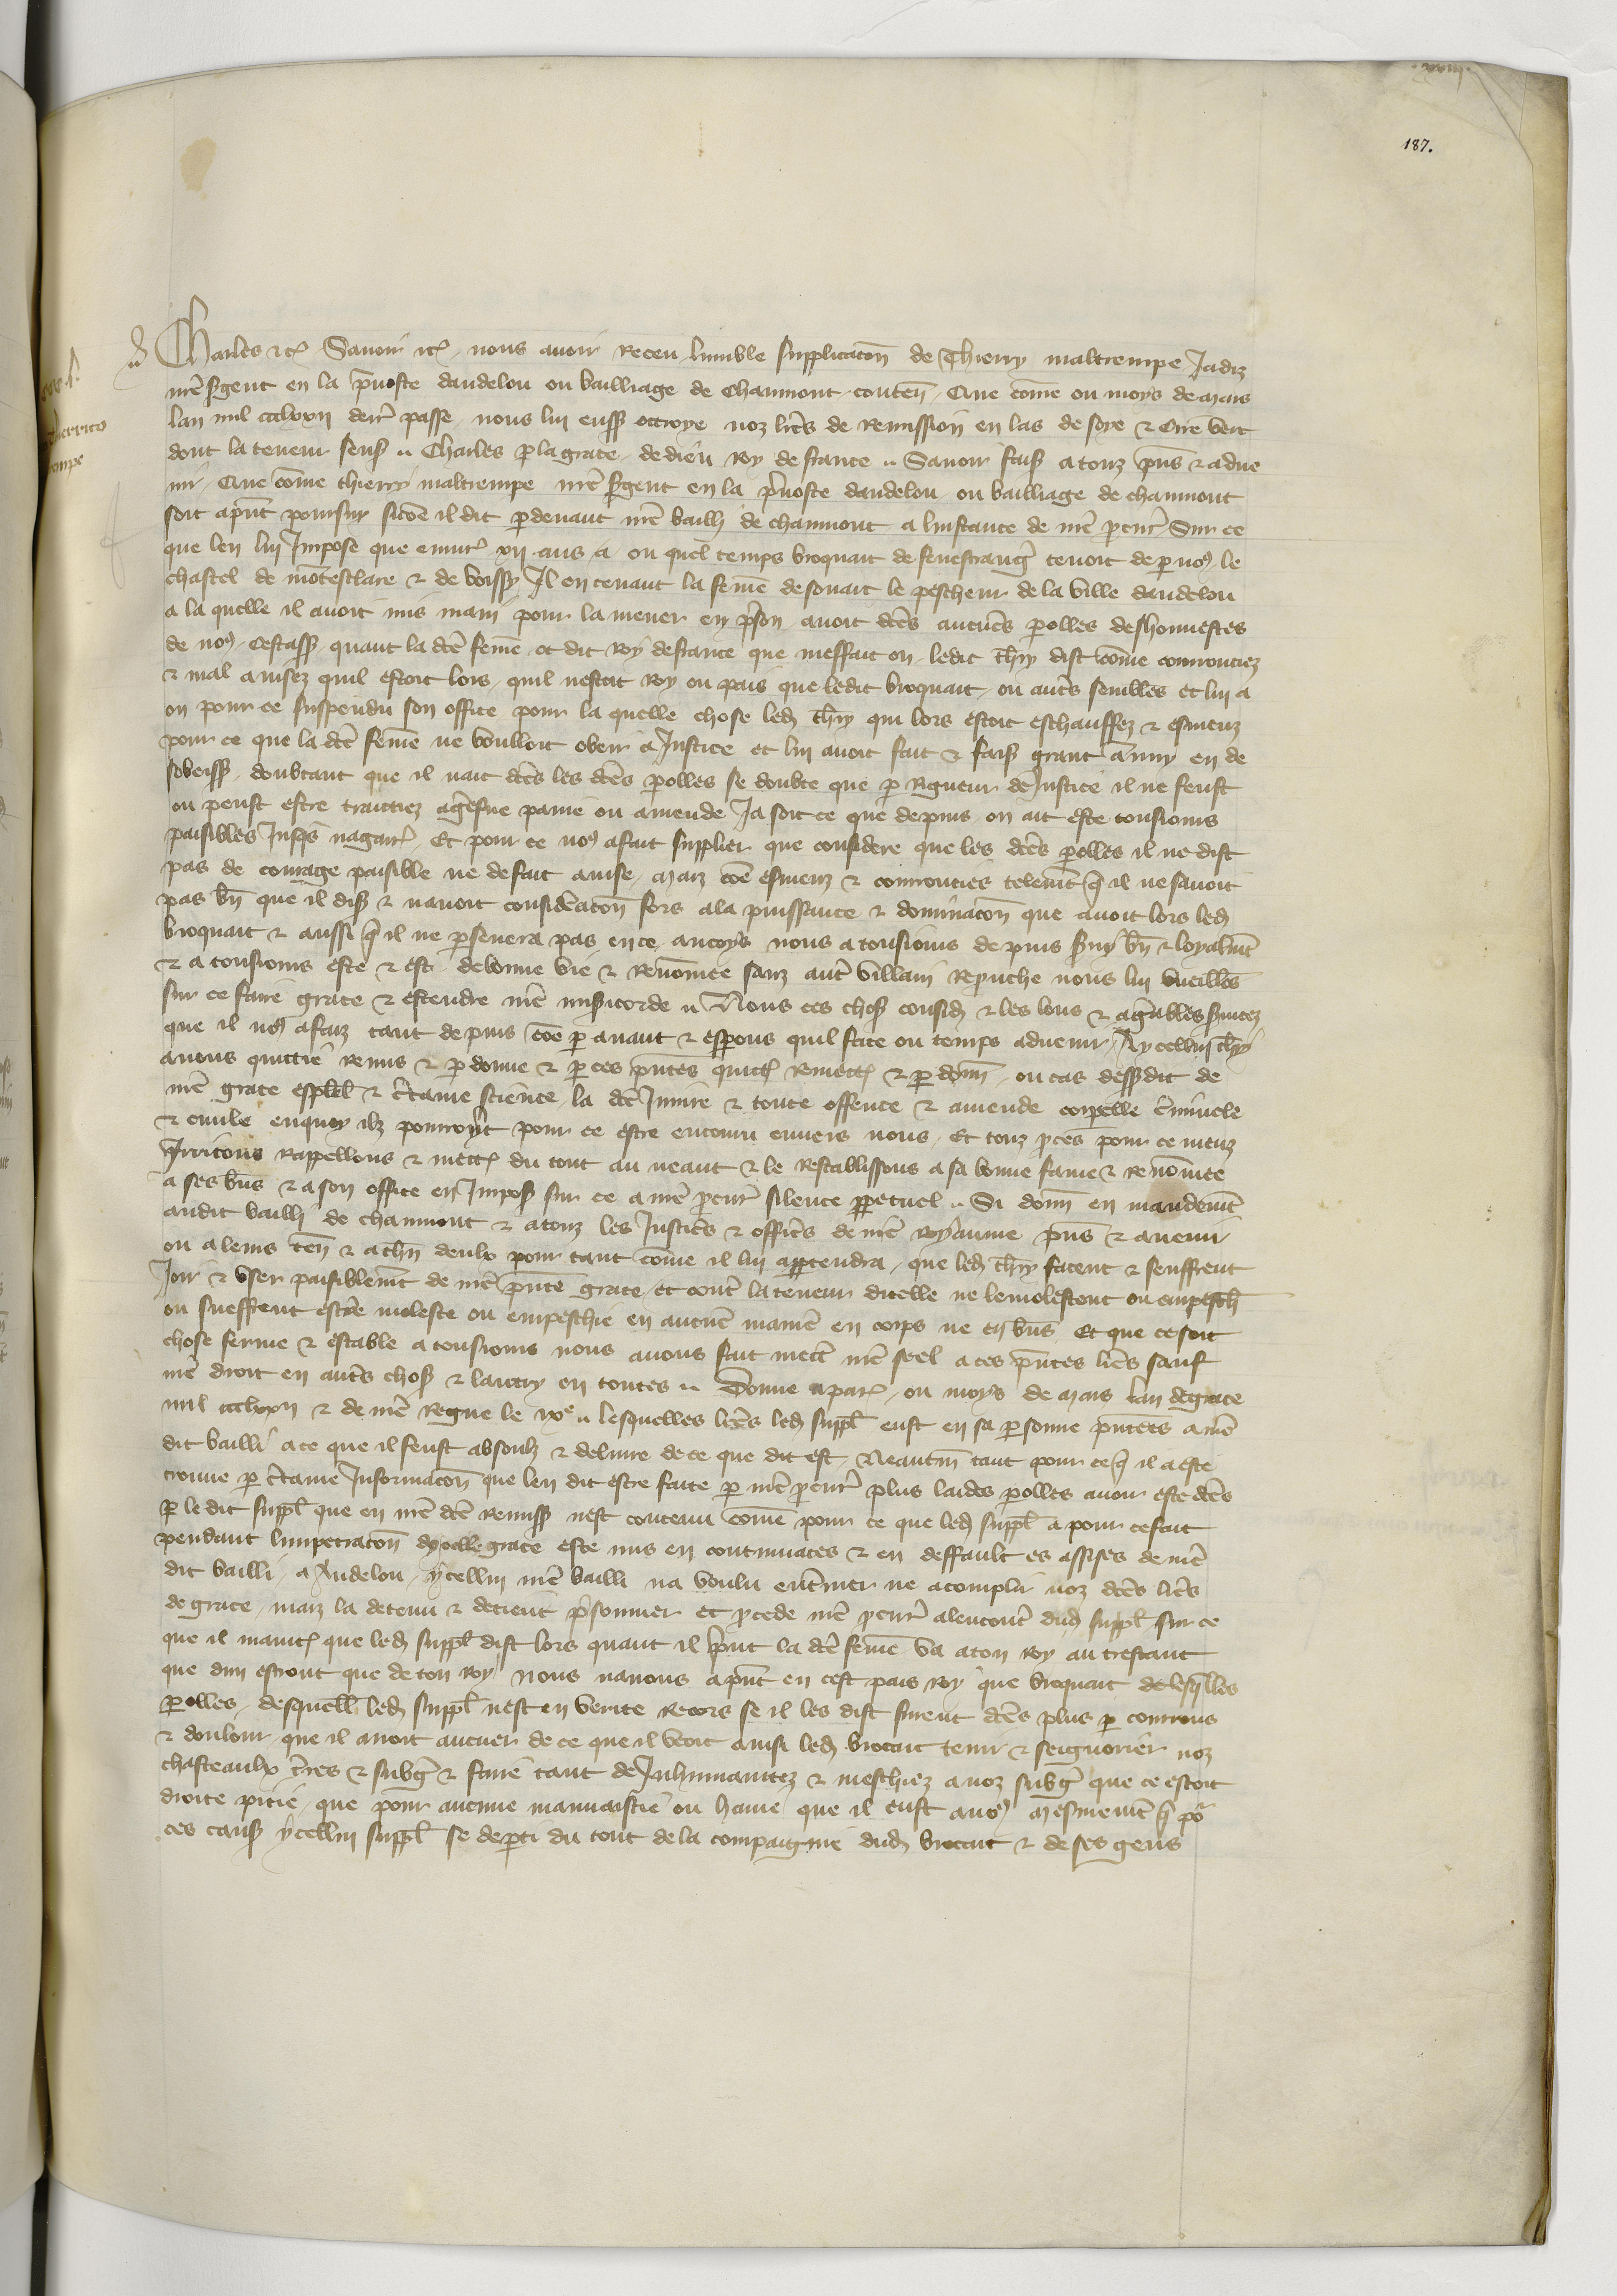 187.
Charles etc̃ Savoir etc̃ nous avoir receu lumble supplicacõn de Thierry maltrempe Jadiz
nr̃e sergent en la p̃voste dandelou ou bailliage de Chaumont conteñ Que cõme ou moys de mars
lan mil ccclxxii derr̃ passe nous lui eussẽ ottroye noz lr̃es de remission en las de soye & cire vert
dont la teneur sensẽ Charles p la grace de dieu roy de france Savoir faisẽ a touz p̃ns & adve
nir Que cõme thierry maltrempe nr̃e sergent en la p̃voste dandelou ou bailliage de chaumont
soit ap̃nt poursuy sicõe il dit p devant nr̃e bailli de chaumont a linstance de nr̃e ꝓcur̃ Sur ce
que len lui Impose que envir̃ xii ans a ou quel temps broquart de fenestrang̃ tenoit de p nọ le
chastel de mõtesclare & de voissy Il en tenant la fem̃e desonait le pescheur de la ville dandelou
a la quelle il avoit mis main pour la mener en p̃son avoit dc̃es aucũes polles deshonnestes
de nọ Cestassẽ quant la dc̃e fem̃e ot dit Roy de france que meffait on ledit th̃ry dist cõme courrouciez
& mal avisez quil estoit lors quil nestoit roy ou pais que ledit broquart ou autr̃s semblles et lui a
on pour ce suspendu son office pour la quelle chose led̃ th̃ry qui lors estoit eschauffez & esmeuz
pour ce que la dc̃e fem̃e ne voulloit obeir a Justice et lui avoit fait & faisẽ grant ãnuy en de
sobeissẽ doubtant que il nait dc̃es les dc̃es polles se doubte que p Rigueur de Justice il ne feust
ou peust estre traictiez a gr̃esve paine ou amende Ja soit ce que depuis on ait este tousiours
paisibles Jusq̃s nagair̃ Et pour ce nọ a fait supplier que considere que les dc̃es polles il ne dist
pas de courage paisible ne de fait avise maiz cõe esmeuz & courrouciez telemt̃ q̃ il ne savoit
pas bñ que il disẽ & navoit consideracõn fors a la puissance & dominacõn que avoit lors led̃
broquart & aussi q̃ il ne psevera pas en ce ancoys nous a tousiours depuis servy bñ & loyalmt̃
& a tousiours este & est de bonne vie & renõmee sanz autr̃ villain reprouche nous lui vueilliẽs
sur ce faire grace & estendre nr̃e mis̃icorde Nous ces chosẽ consid̃ & les bons & ag̃ables s̃vicez
que il nọ a faiz tant depuis cõe p avant & espons quil face ou temps advenir Aycellui th̃ry
avons quittie remis & pdonne & p ces p̃ntes quict̃ remect̃ & pdonñ ou cas dessusdit de
nr̃e grace esp̃al & c̃taine science la dc̃e Iniure & toute offence & amende corpelle c̃minele
& civile en quoy ilz pourroyt̃ pour ce estre encouru envers nous Et touz ꝓces pour ce meuz
Irritons rappellons & mect̃ du tout au neant & le restablissons a sa bonne fame & renõmee
a ses bñs & a son office en Imposẽ sur ce a nr̃e ꝓcur̃ silence ppetuel Si donñ en mandemt̃
audit bailli de chaumont & a touz les Justic̃s & offic̃s de nr̃e royaume p̃ns & avenir
ou a leurs teñ & a ch̃ñ deulx pour tant cõme il lui apptendra que led̃ th̃ry facent & seuffrent
Joir & user paisiblemt̃ de nr̃e p̃nte grace et contr̃ la teneur dicelle ne le molestent ou empesch̃
ou sueffrent estre moleste ou empeschie en aucũe manir̃e en corps ne en bñs Et que ce soit
chose ferme & estable a tousiours nous avons fait mectr̃ nr̃e seel a ces p̃ntes lr̃es sauf
nr̃e droit en autr̃s chosẽ & lautry en toutes Donne a par̃ ou moys de mars lan de grace
mil ccclxxii & de nr̃e regne le ixe lesquelles lr̃es led̃ suppl̃ eust en sa psonne p̃ntees a nr̃e
dit bailli a ce que il feust absoulz & delivre de ce que dit est Neantm̃ tant pour ce q̃ il a este
trouve p c̃taine Informacõn que len dit estre faite p nr̃e ꝓcur̃ plus laides polles avoir este dc̃es
p le dit suppl̃ que en nr̃e dc̃e remissẽ nest contenu cõme pour ce que led̃ suppl̃ a pour ce fait
pendant limpetracõn dycelle grace este mis en contumaces & en deffault es assises de nr̃e
dit bailli a Andelou ycellui nr̃e bailli na voulu ent̃iner ne acomplir noz dc̃es lr̃es
de grace maiz la detenu & detient p̃sonnier et ꝓcede nr̃e ꝓcur̃ alencontr̃ dud̃ suppl̃ sur ce
que il maint̃ que led̃ suppl̃ dist lors quant il p̃nt la dc̃e fem̃e Va a ton roy autrestant
que dun estront que de ton roy nous navons ap̃nt en cest pais roy que broquart desq̃lles
polles desquell̃ led̃ suppl̃ nest en verite recors se il les dist furent dc̃es plus p courrous
& doulour que il avoit au cuer de ce que il veoit ainsi led̃ brocart tenir & seignorier noz
chasteaulx tr̃res & subg̃ & faire tant de Inhumanitez & meschiez a noz subg̃ que ce estoit
droite pitie que pour aucune mauvaistie ou haine que il eust a nọ mesmemt̃ q̃ po᷑
ces causẽ ycellui suppl̃ se depti du tout de la compaignie dud̃ brocart & de ses gens